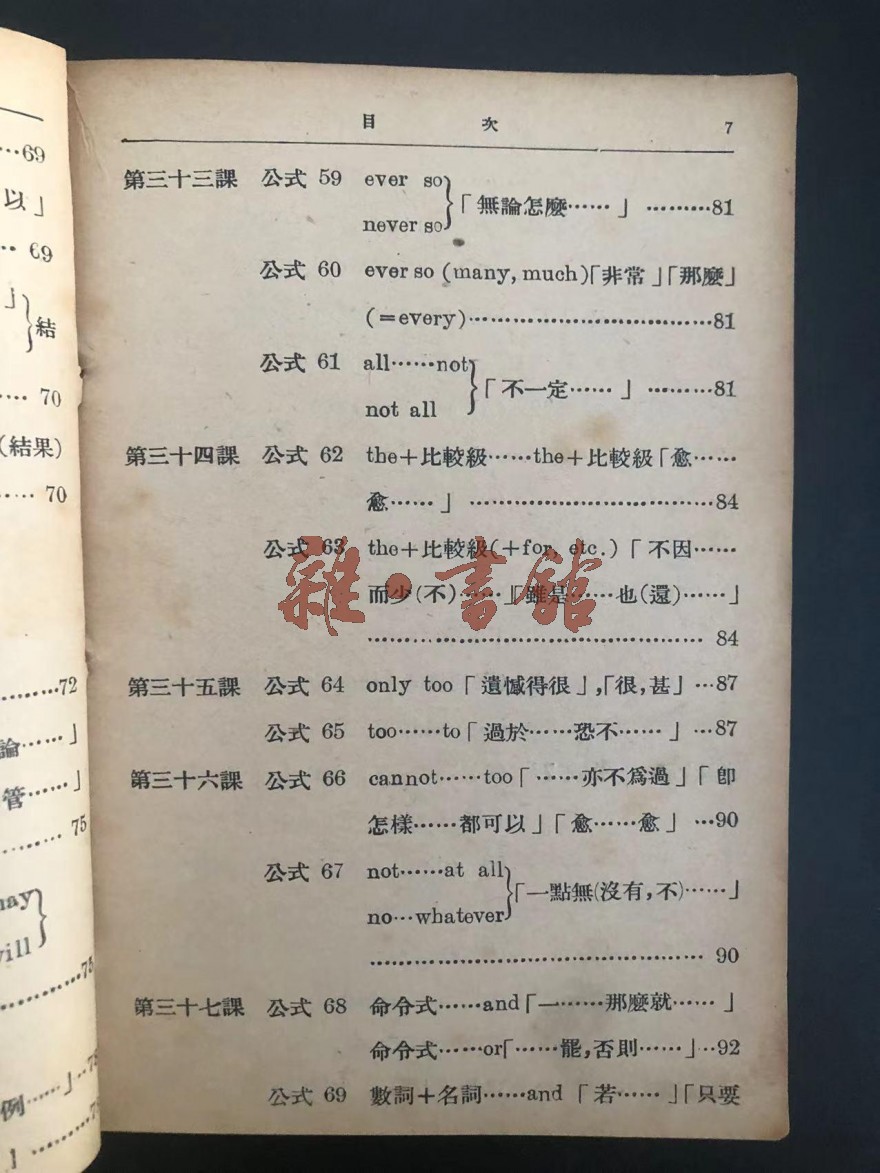 …69
以」
… 69
」
結
…… 70
(結果)
…… 70
………72
論……」
管……」
……… 75
may
will
………75
例……」
」
目 次 7
第三十三課 公式 59 ever so
never so
「無論怎麼……」………81
公式 60 ever so (many, much)「非常」「那麼」
(=every)………………………………81
公式 61 all……not
not all
「不一定……」………81
第三十四課 公式 62 the+比較級……the+比較級「愈……
愈……」………………………………84
公式 63 the+比較級(+for, etc.)「不因……
而少(不)……」「雖是……也(還)……」
……………………………………… 84
第三十五課 公式 64 only too「遺憾得很」,「很,甚」…87
公式 65 too……to「過於……恐不……」…87
第三十六課 公式 66 cannot……too「……亦不爲過」「卽
怎樣……都可以」「愈……愈」…90
公式 67 not……at all
no…whatever
「一點無(沒有,不)……」
……………………………………… 90
第三十七課 公式 68 命令式……and「一……那麼就……」
命令式……or「……罷,否則……」…92
公式 69 數詞+名詞……and「若……」「只要
雜·書館